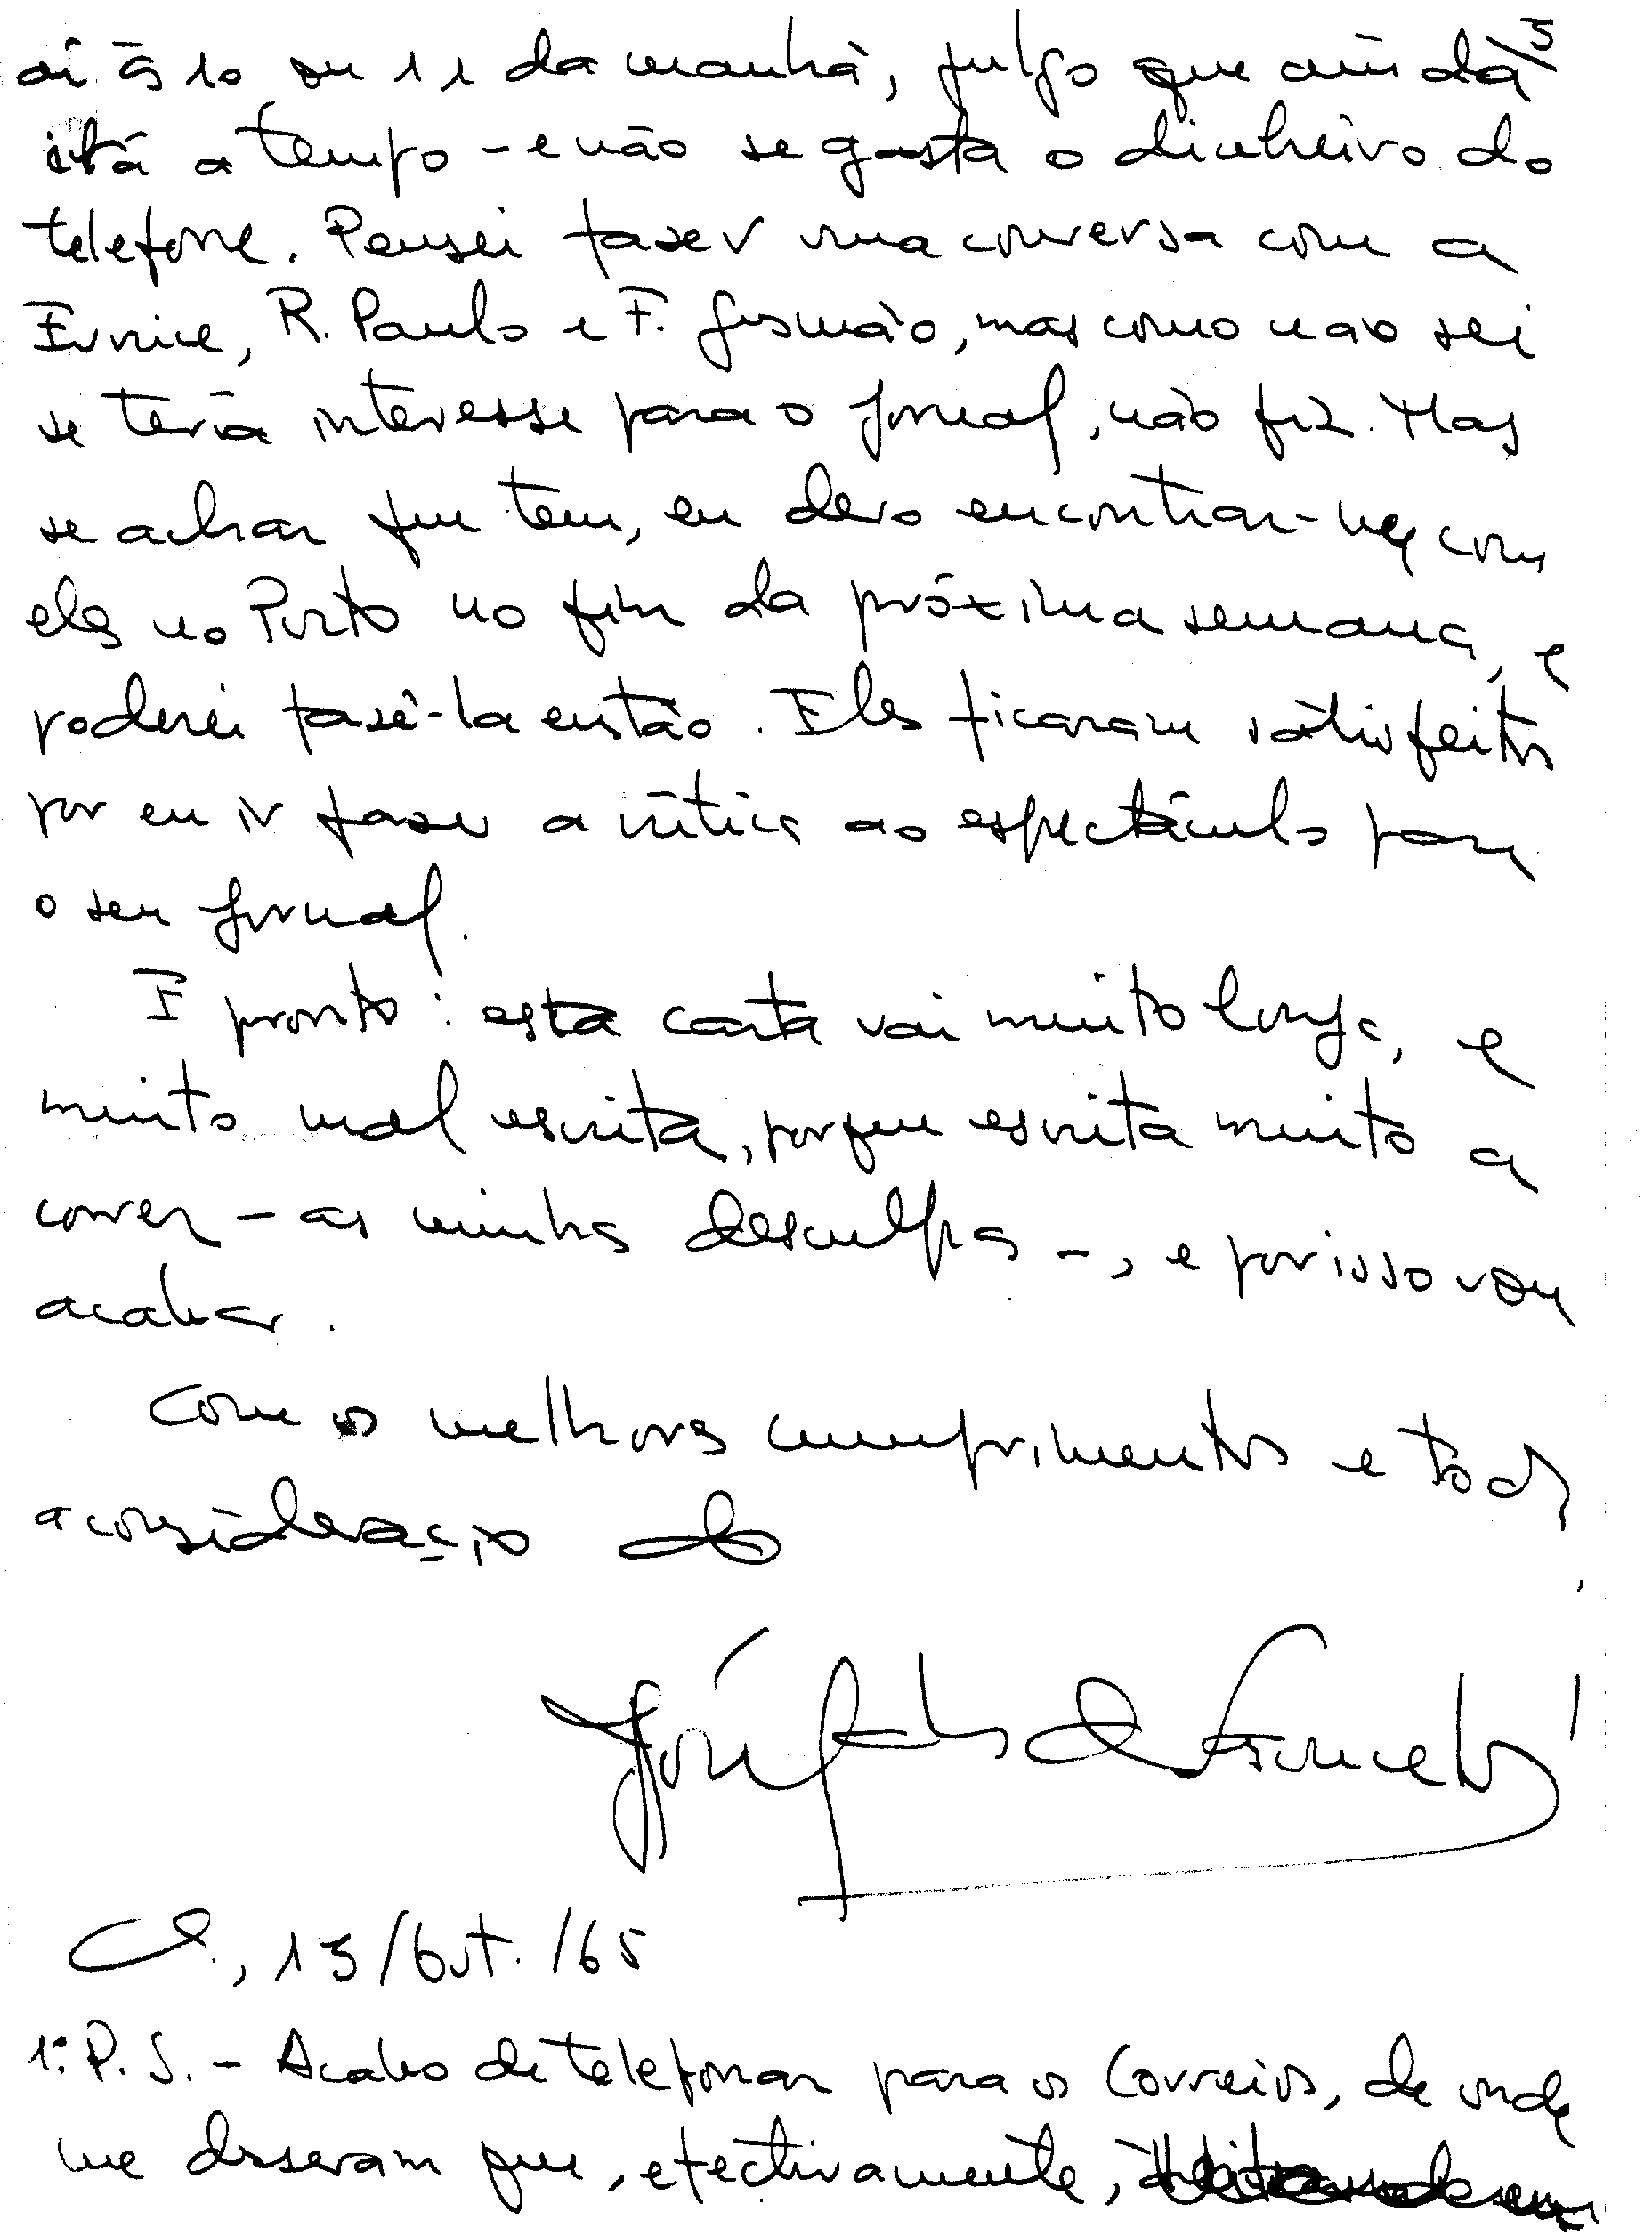 5
aí às 10 ou 11 da manhã, julgo que ainda
está a tempo - e não se gasta o dinheiro do
telefone. Pensei fazer uma conversa com a
Eunice, R. Paulo e F. Gusmão, mas como não sei
se teria interesse para o jornal, não fiz. Mas
se achar que tem, eu devo encontrar-me com
eles no Porto no fim da próxima semana, e
poderei fazê-la então. Eles ficaram satisfeitos
por eu ir fazer a crítica ao espectáculo para
o seu jornal.
E pronto: esta carta vai muito longa, e
muito mal escrita, porque escrita muito a
correr - as minhas desculpas -, e por isso vou
acabar.
Com os melhores cumprimentos e toda
a consideração do
José Carlos de Vasconcelos
C., 13/Out./65
1º P. S. - Acabo de telefonar para os Correios, de onde
me disseram que, efectivamente,